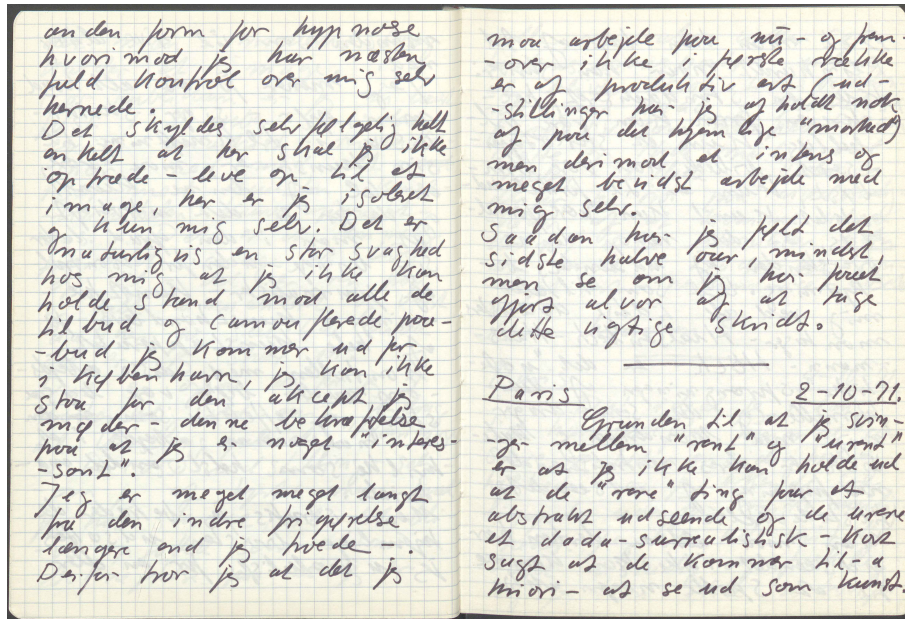 anden form for hypnose
hvorimod jeg har næsten
fuld kontrol over mig selv
hernede.
Det skyldes selvfølgelig helt
enkelt at her skal jeg ikke
optræde - leve op til et
image, her er jeg isoleret
og kun mig selv. Det er
naturligvis en stor svaghed
hos mig at jeg ikke kan
holde stand mod alle de
tilbud og camouflerede paa-
-bud jeg kommer ud for
i København, jeg kan ikke
staa for den akcept jeg
møder - denne bekræftelse
paa at jeg er noget "interes-
-sant".
Jeg er meget meget langt
fra den indre frigørelse
længere end jeg troede -.
Derfor tror jeg at det jeg
maa arbejde paa nu - og frem-
-over ikke i første række
er af produktiv art (ud-
-stillinger har jeg afholdt nok
af paa det hjemlige "marked")
men derimod et intens og
meget bevidst arbejde med
mig selv.
Saadan har jeg følt det
sidste halve aar, mindst,
men se om jeg har faaet
gjort alvor af at tage
dette vigtige skridt.
Paris 2-10-71.
Grunden til at jeg svin-
-ger mellem "rent" og "urent"
er at jeg ikke kan holde ud
at de "rene" ting faar et
abstrakt udseende og de urene
et dada-surrealistisk - kort
sagt at de kommer til - a
priori - at se ud som kunst.